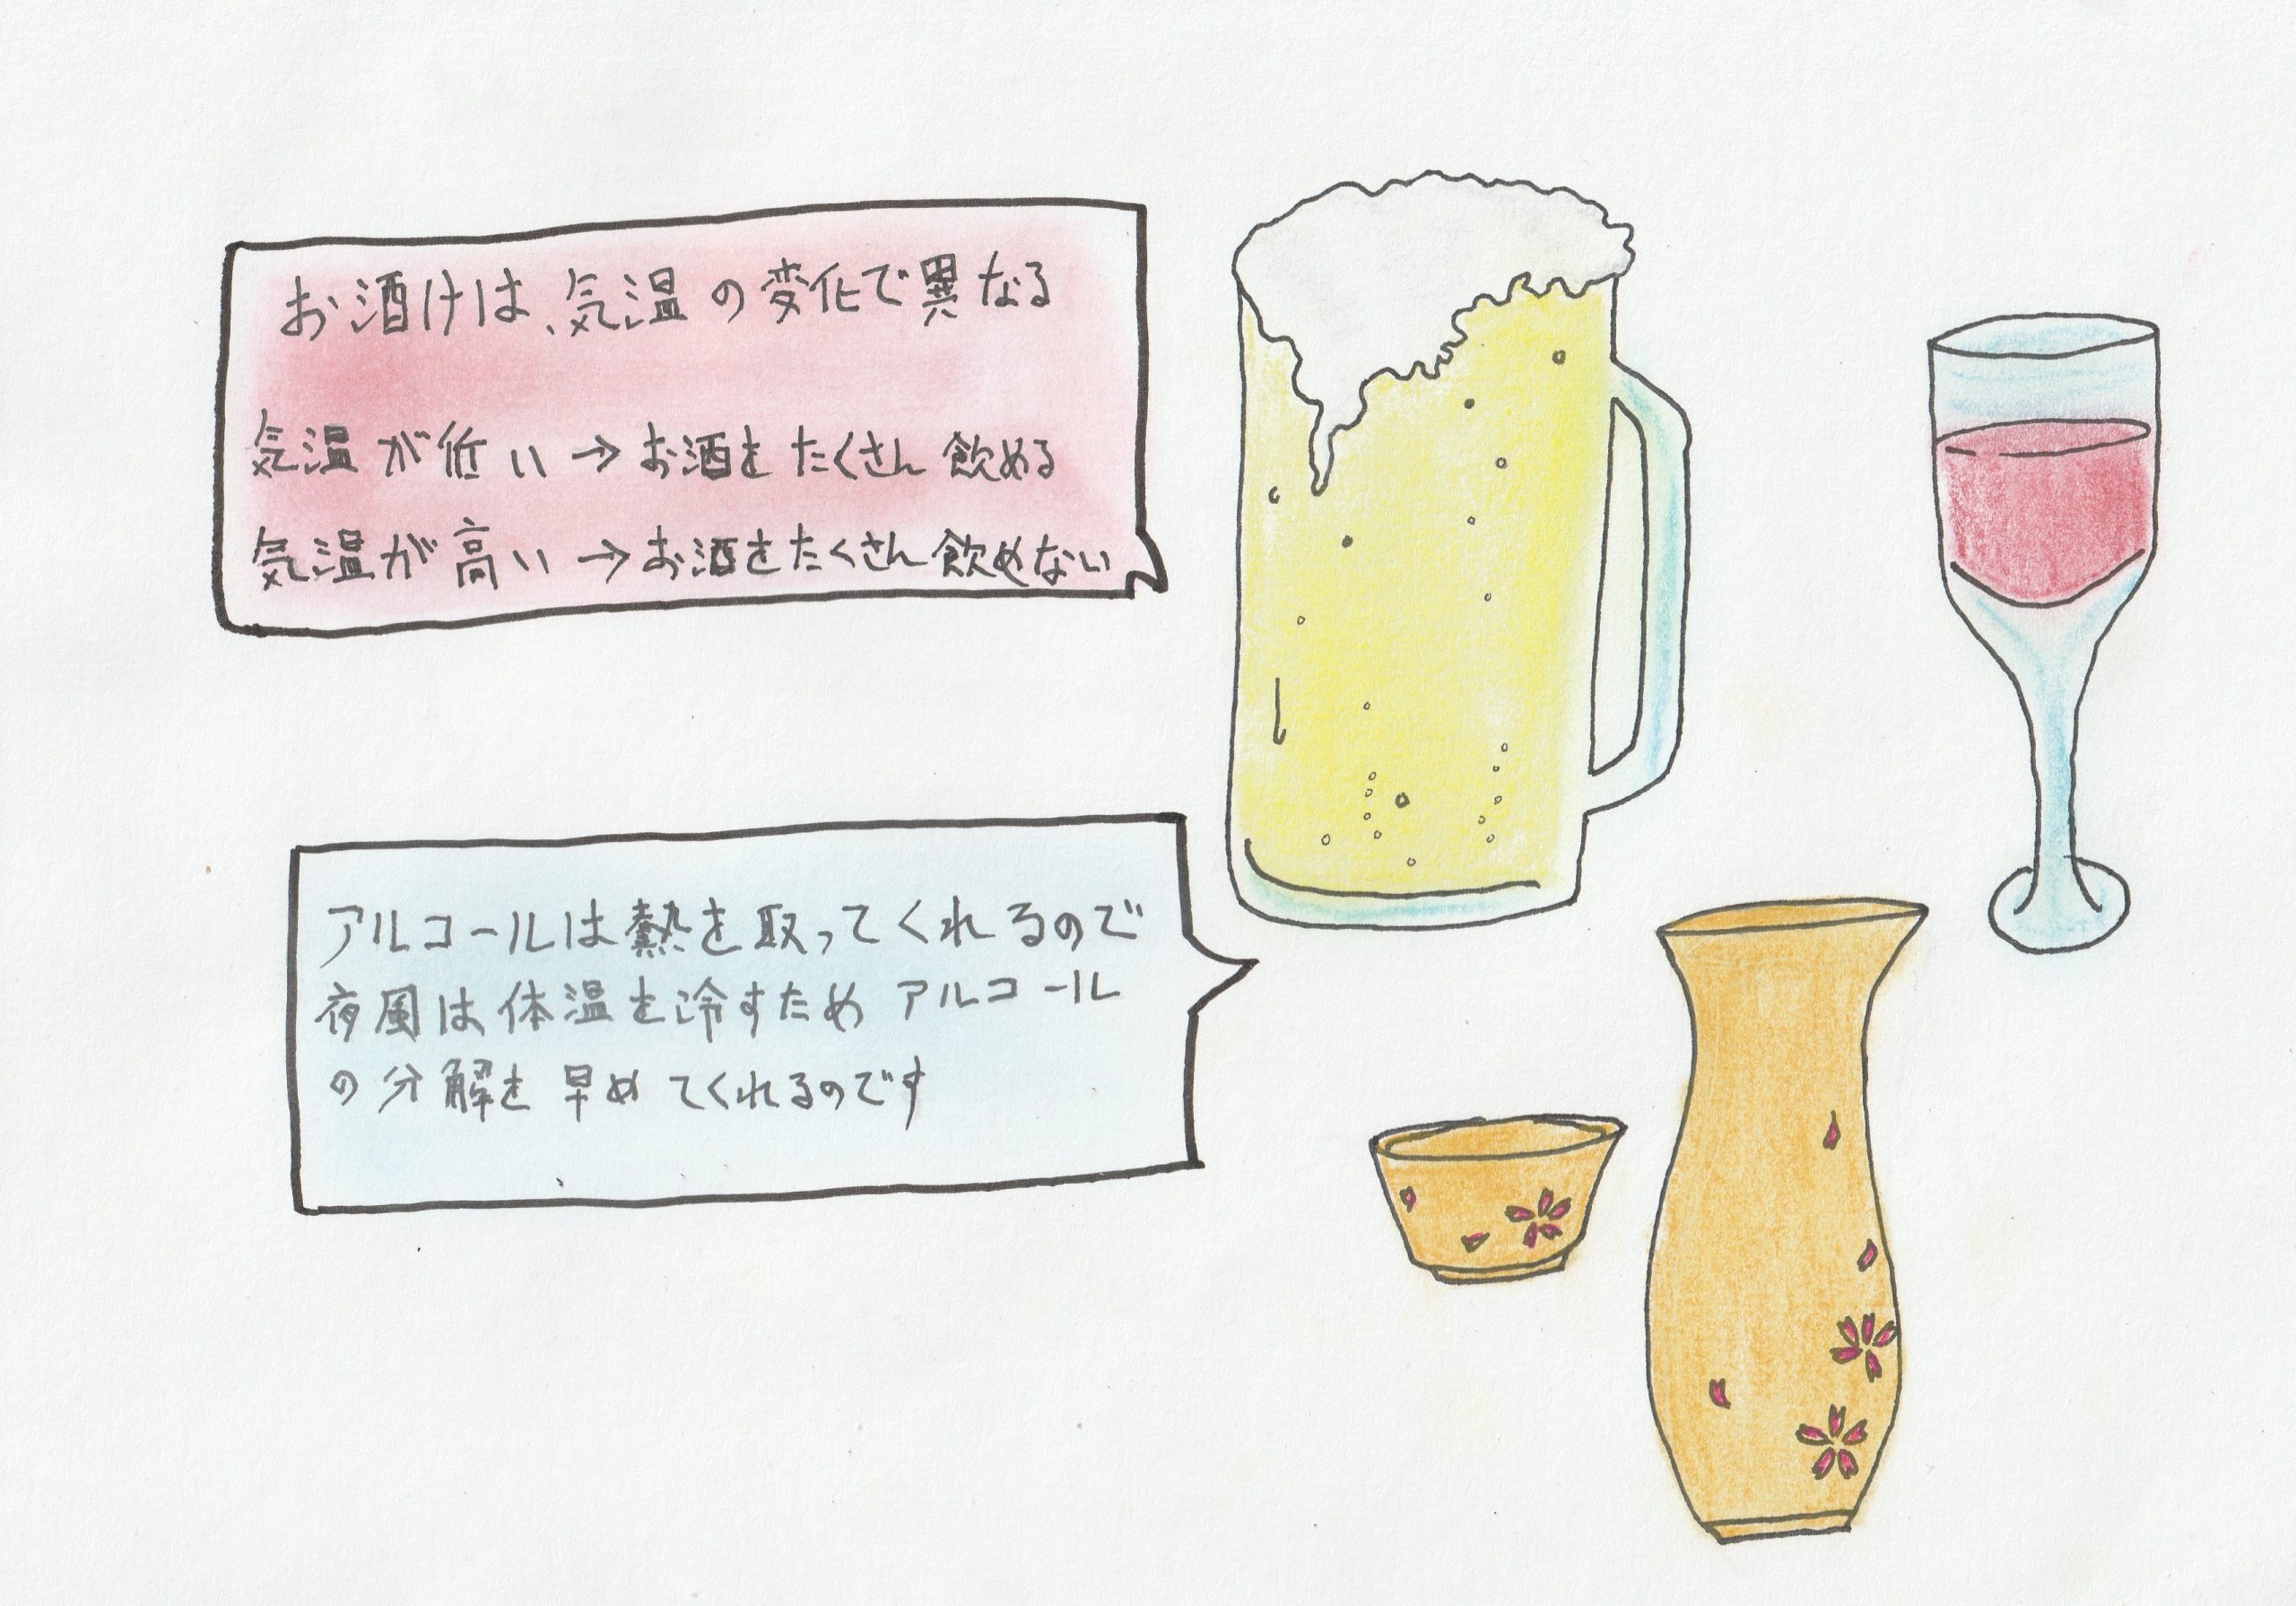 お酒けは、気温の変化で異なる
気温が低い→お酒をたくさん飲める
気温が高い→お酒をたくさん飲めない
アルコールは熱を取ってくれるので
夜風は体温を冷すため アルコール
の分解を早めてくれるのです